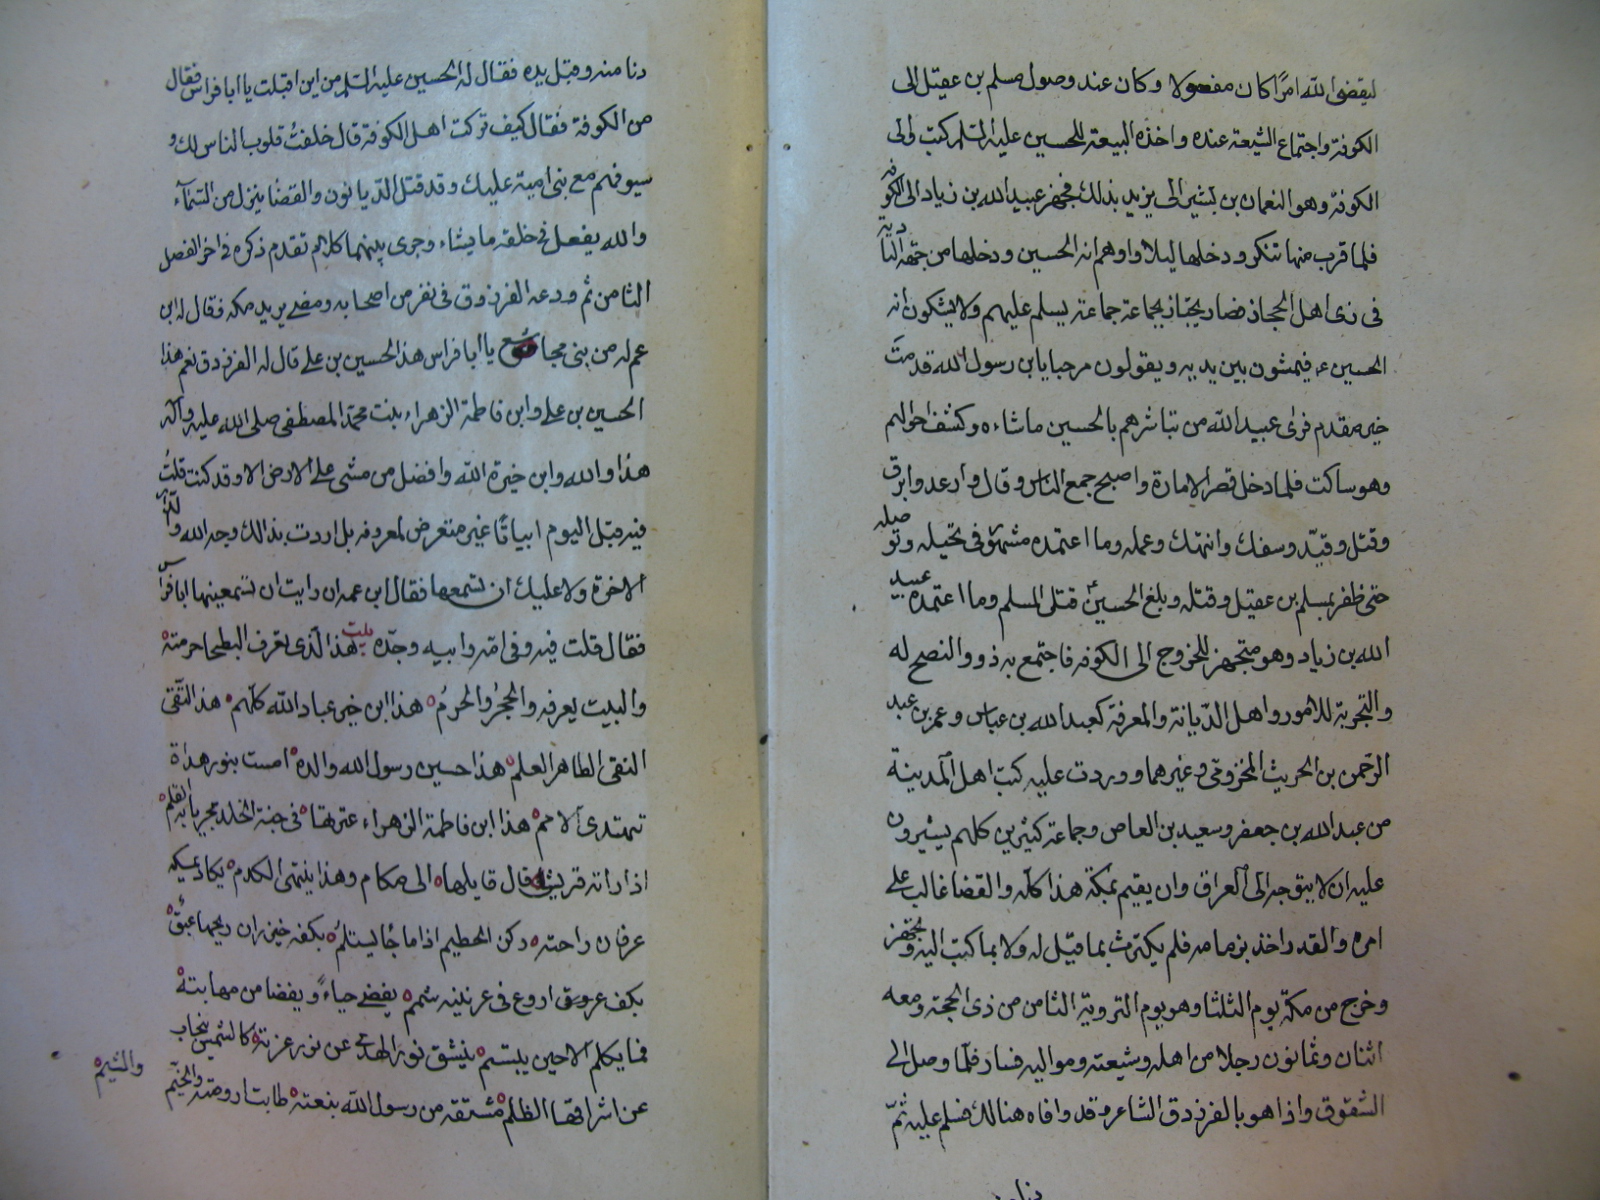 ليقضى الله امرًا كان مفعولا وكان عند وصول مسلم بن عقيل الى
الكوفة واجتماع الشيعة عنده واخذه البيعة للحسين عليه السلم كتب والى
الكوفة وهو النعمان بن بشير الى يزيد بذلك فجهز عبيد الله بن زياد الى الكوفه
فلما قرب منها تنكر ودخلها ليلا واوهم انه الحسين ودخلها من جهة البادية
فى زى اهل الحجاز فصار يجتاز بجماعة جماعة يسلم عليهم ولا يشكون انه
الحسين ع فيمشون بين يديه ويقولون مرحبا يابن رسول الله قدمت
خير مقدم فراى عبيد الله من تباشرهم بالحسين ما ساءه وكشف احوالهم
وهو ساكت فلما دخل قصر الامارة واصبح جمع الناس وقال وارعد وابرق
وقتل وقيد وسفك وانتهك وعمله وما اعتمده مشهور فى تحيله وتوصله
حتى ظفر بمسلم بن عقيل وقتله وبلغ الحسين قتل المسلم وما اعتمده عبيد
الله بن زياد وهو متجهز للخروج الى الكوفه فاجتمع به ذوو النصح له
والتجربة للامور واهل الديانة والمعرفة كعبد الله بن عباس وعمر بن عبد
الرحمن بن الحريث المخزومى وغيرهما ووردت عليه كتب اهل المدينة
من عبد الله بن جعفر وسعيد بن العاص وجماعة كثيرين كلهم يشيرون
عليه ان لا يتوجه الى العراق وان يقيم بمكة هذا كله والقضا غالب على
امره والقدر اخذ بزمامه فلم يكترث بما قيل له ولا بما كتب اليه وتجهز
وخرج من مكة يوم الثلثا وهو يوم التروية الثامن من ذى الحجة ومعه
اثنان وثمانون رجلا من اهله وشيعته ومواليه فسار فلما وصل الى
الشقوق واذا هو بالفرزدق الشاعر وقد وافاه هنالك فسلم عليه ثم
دنا منه
دنا منه وقبل يده فقال له الحسين عليه السلم من اين اقبلت يا ابا فراس فقال
من الكوفة فقال كيف تركت اهل الكوفة قال خلفتُ قلوب الناس لك و
سيوفهم مع بنى امية عليك وقد قتل الديانون والقضا ينزل من السماء
والله يفعل فى خلقه ما يشاء وجرى بينهما كلام تقدم ذكره فى اخر الفصل
الثامن ثم ودعه الفرزدق فى نفر من اصحابه ومضى يريد مكه فقال له ابن
عم له من بنى مجاشع يا ابا فراس هذا الحسين بن على قال له الفرزدق نعم هذا
الحسين بن على وابن فاطمة الزهراء بنت محمد المصطفى صلى الله عليه وآله
هذا والله وابن خيرة الله وافضل من مشى على الارض الا وقد كنت قلتُ
فيه قبل اليوم ابياتًا غير متعرض لمعروفه بل اردت بذالك وجه الله والدار
الاخرة ولا عليك ان تسمعها فقال ابن عمه ان رايت ان تسمعنيها ابا فراس
فقال قلت فيه وفى امه وابيه وجده بيت هذا الذى تعرف البطحا حرمته
والبيت يعرفه والحجرُ والحرمُ هذا ابن خير عباد الله كلهم هذ التقى
النقى الطاهر العلم هذا حسين رسول الله والده امست بنور هداة
تهتدى الامم هذا ابن فاطمة الزهراء عترتها فى جنة الخلد مجريا به القلم
اذا راته قريش قال قايلها الى مكارم هذا ينتهى الكرم يكاد يمسكه
عرفان راحته ركن الحطيم اذا ما جا يستلمُ بكفه خيزران ريحها عبق
بكف عروق اروع فى عرنينه شمم يغضى حياءً ويغضا من مهابته
فما يكلم الا حين يبتسم ينشق نور الهدى عن نور غرته كالشمس ينجاب
عن اشراقها الظلم مشتقة من رسول الله بنعته طابت ارومته والخيم
والشيم